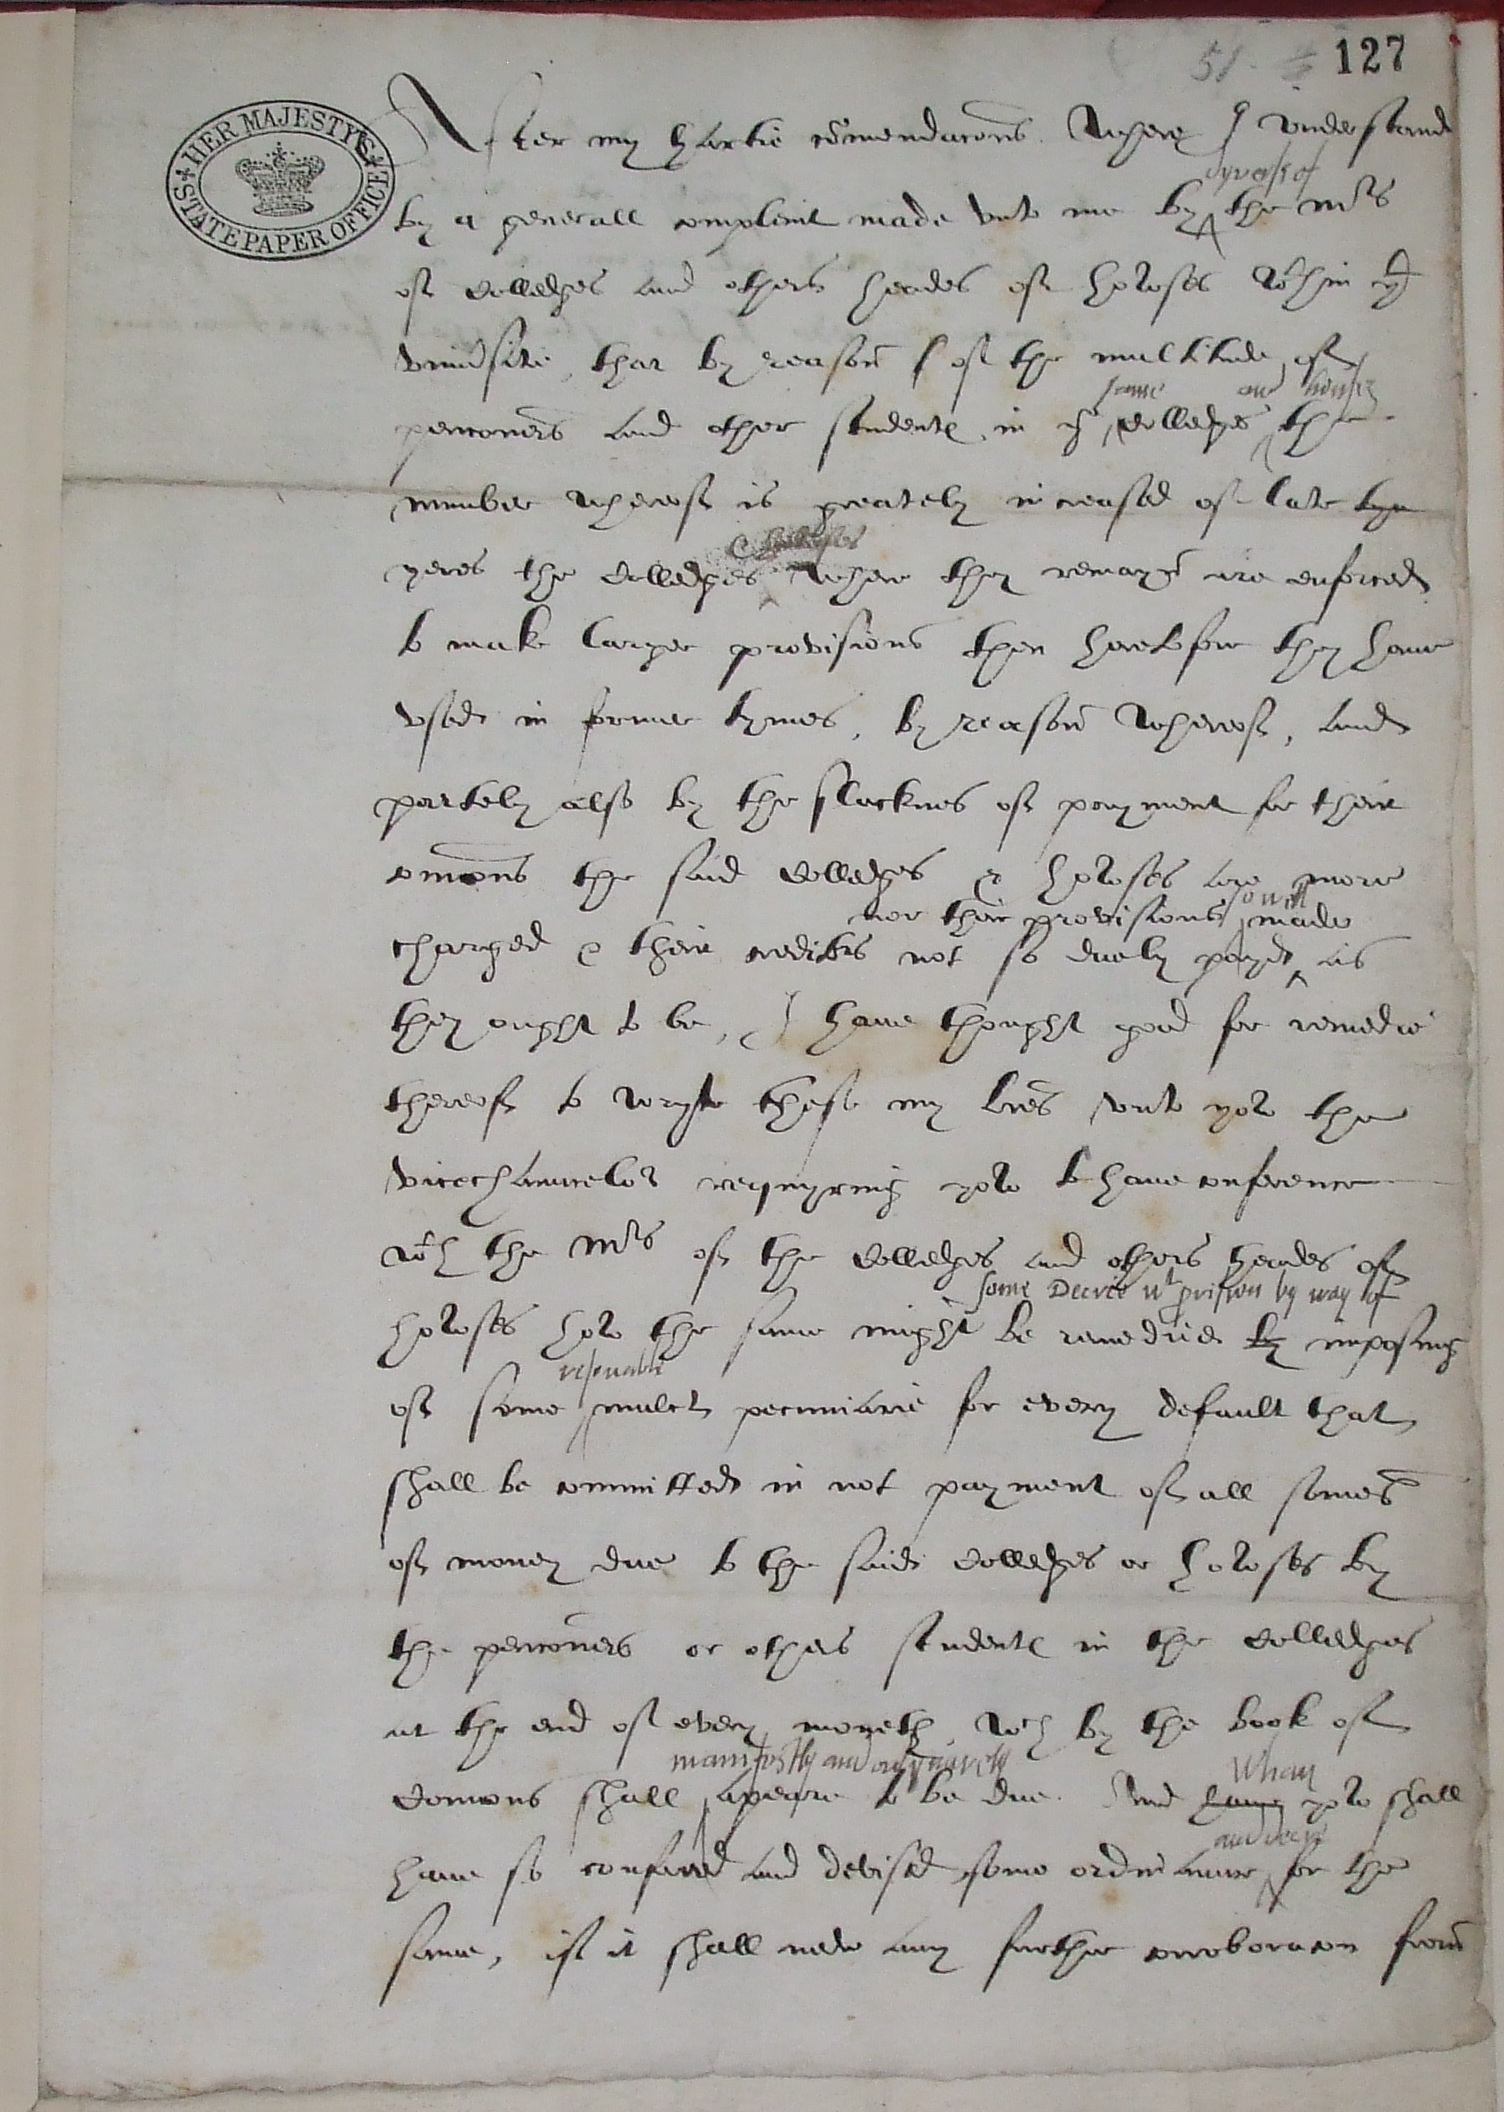 51
127
HER MAJESTY'S
STATE PAPER OFFICE
After my hartie com̄endacons. Where I understand
dyvers of
by a generall complaint made vnto me by the Mrs
of Colledges and others heades of howses wthin yt
vniusite, that by reason of the multitude of
same and howses
pencioners and other students in ye Colledges the
number whereof is greately increased of late
yeres the Colledges where they remayn are enforced
to make larger provisions then heretofore they haue
vsed in former tymes, by reason whereof, and
partely also by the slacknes of payment for their
com̄ons the said Colledges & howses are more
nor their provisions so well made
charged & their creditors not so duely payd as
they ought to be, I haue thought good for remedie
thereof to wryte these my lres vnto yow the
vicechauncelor requyring yow to haue conference
wth the Mrs of the Colledges and others heades of
some Decree wt provision by way of
howses how the same might be remedied by imposing
resonable
of some mulct pecuniarie for every default that
shall be committed in not payment of all somes
of money due to the said Colledges or howses by
the pencioners or others students in the Colledges
at the end of every moneth wch by the book of
manifestly and
Comons shall apeare to be due. And haue yow shall
whan
haue so conferred and devised some ordinaunce for the
and decre
same, if it shall nede any further corroboracon from